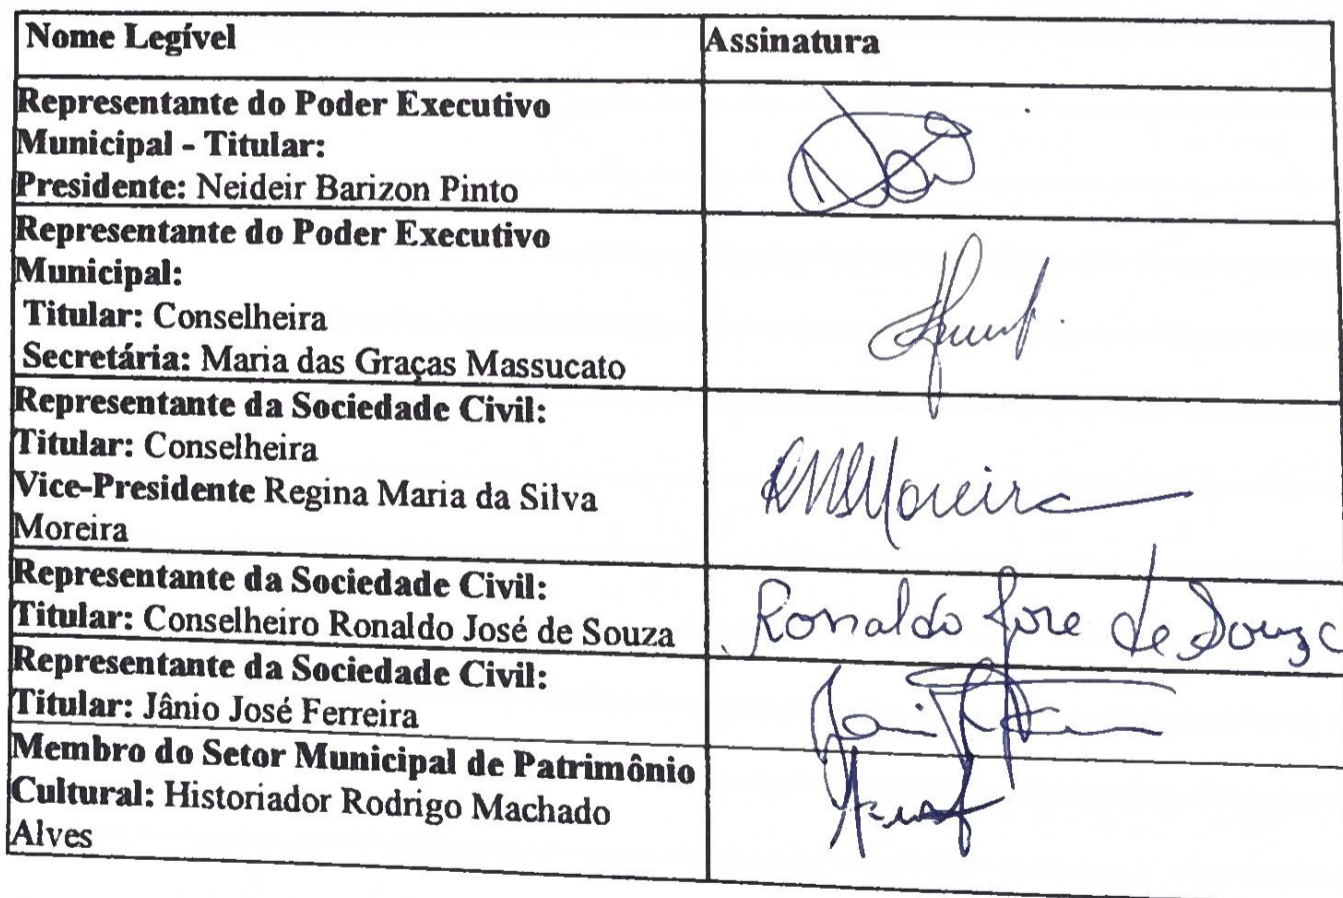 Nome Legível
Assinatura
Representante do Poder Executivo
Municipal - Titular:
Presidente: Neideir Barizon Pinto
Representante do Poder Executivo
Municipal:
Titular: Conselheira
Secretária: Maria das Graças Massucato
Representante da Sociedade Civil:
Titular: Conselheira
Vice-Presidente Regina Maria da Silva
Moreira
RMSMoreira
Representante da Sociedade Civil:
Titular: Conselheiro Ronaldo José de Souza
Ronaldo Jose de Souza
Representante da Sociedade Civil:
Titular: Jânio José Ferreira
Membro do Setor Municipal de Patrimônio
Cultural: Historiador Rodrigo Machado
Alves